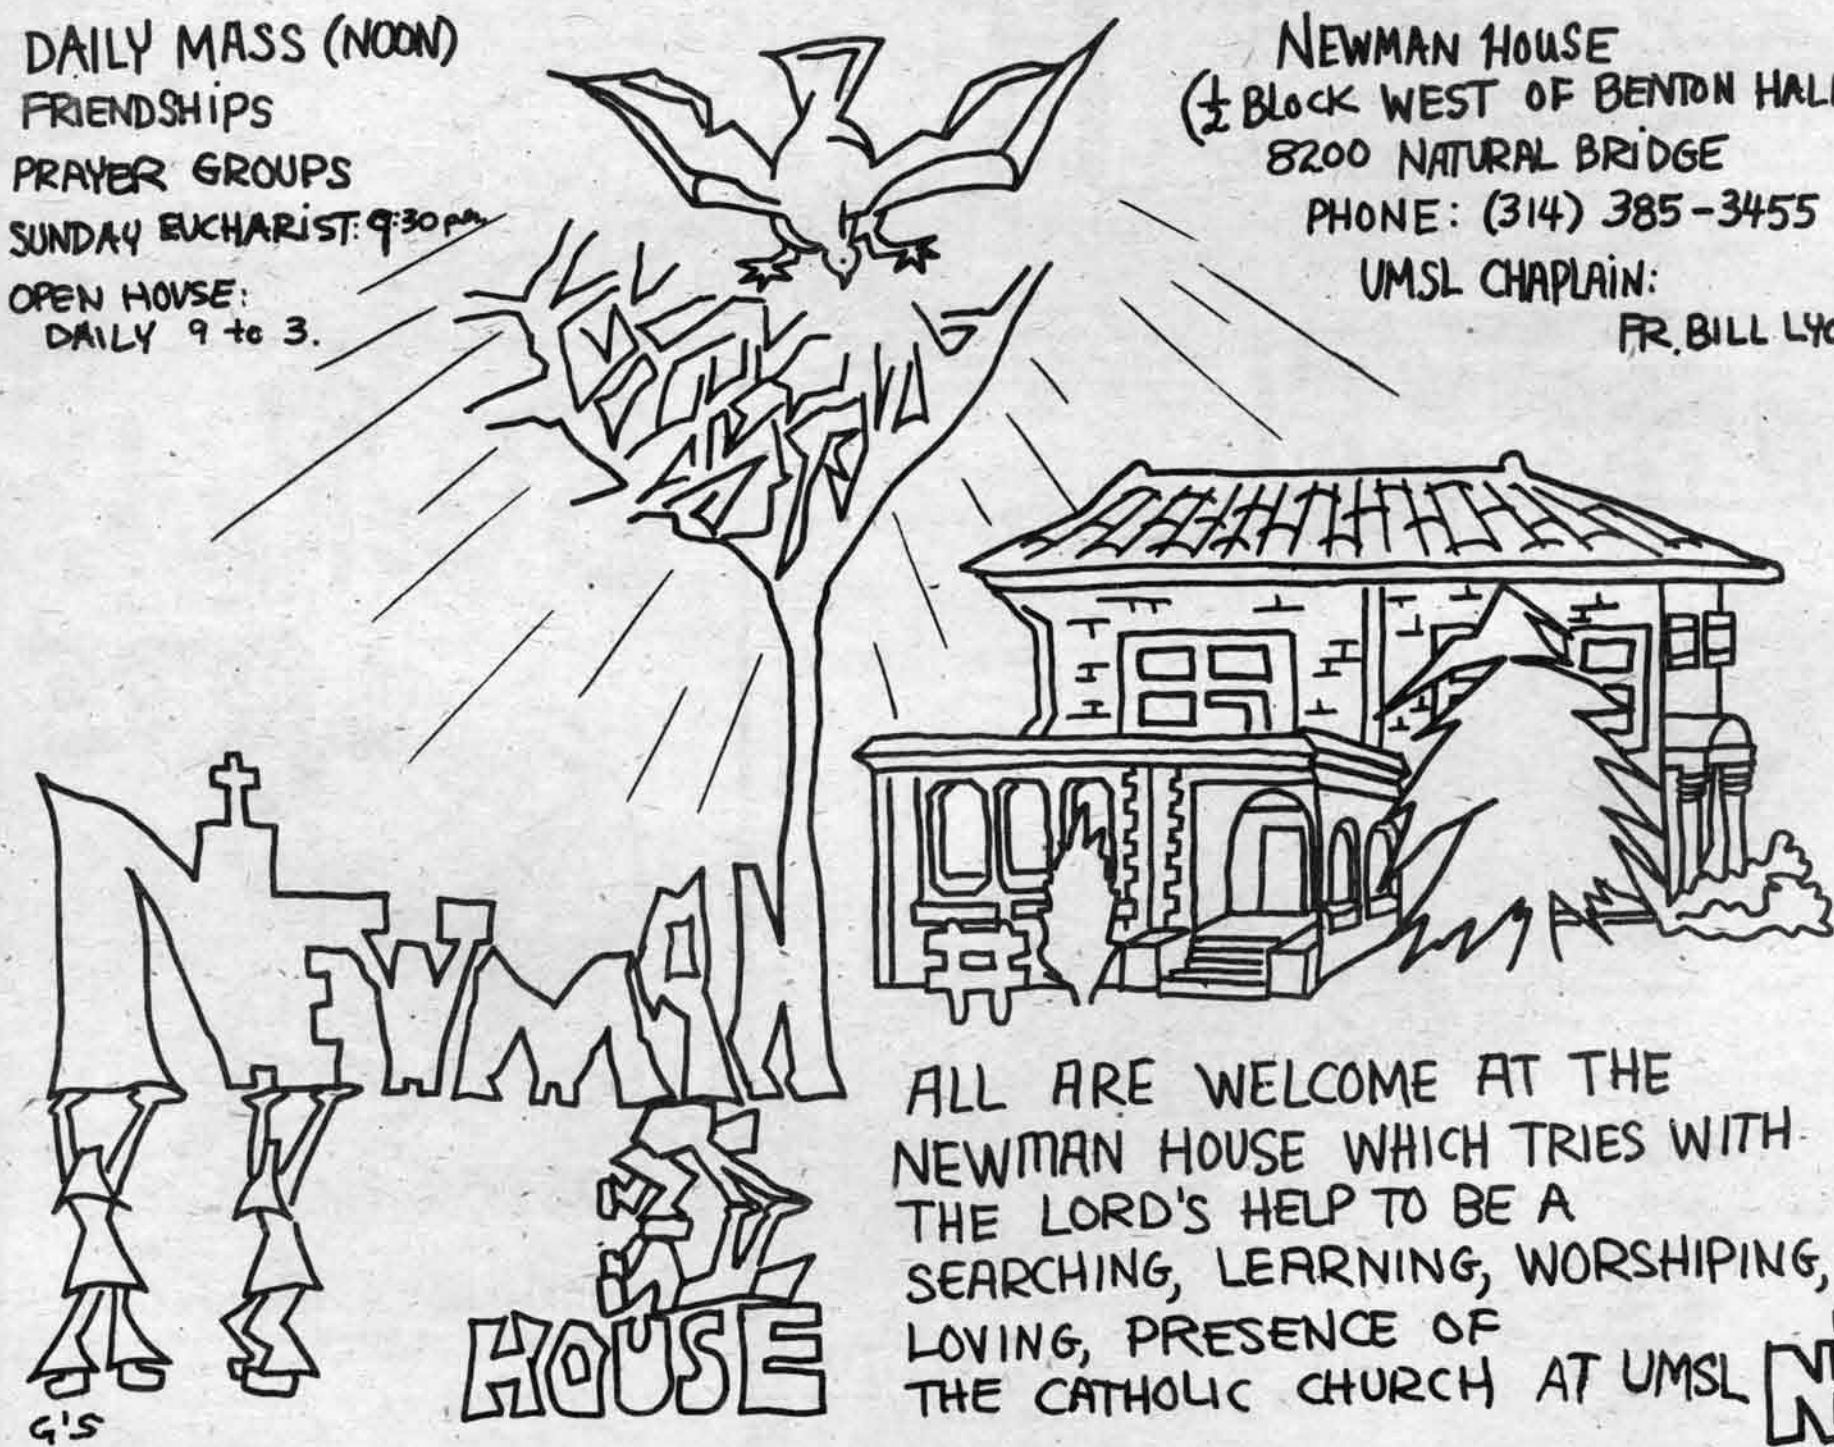 DAILY MASS (NOON)
FRIENDSHIPS
PRAYER GROUPS
SUNDAY EUCHARIST: 9:30 pm
OPEN HOUSE:
DAILY 9 to 3.
NEWMAN HOUSE
(½ BLOCK WEST OF BENTON HALL
8200 NATURAL BRIDGE
PHONE: (314) 385-3455
UMSL CHAPLAIN:
FR. BILL
NEWMAN
HOUSE
G'S
ALL ARE WELCOME AT THE
NEWMAN HOUSE WHICH TRIES WITH
THE LORD'S HELP TO BE A
SEARCHING, LEARNING, WORSHIPING,
LOVING, PRESENCE OF
THE CATHOLIC CHURCH AT UMSL
N